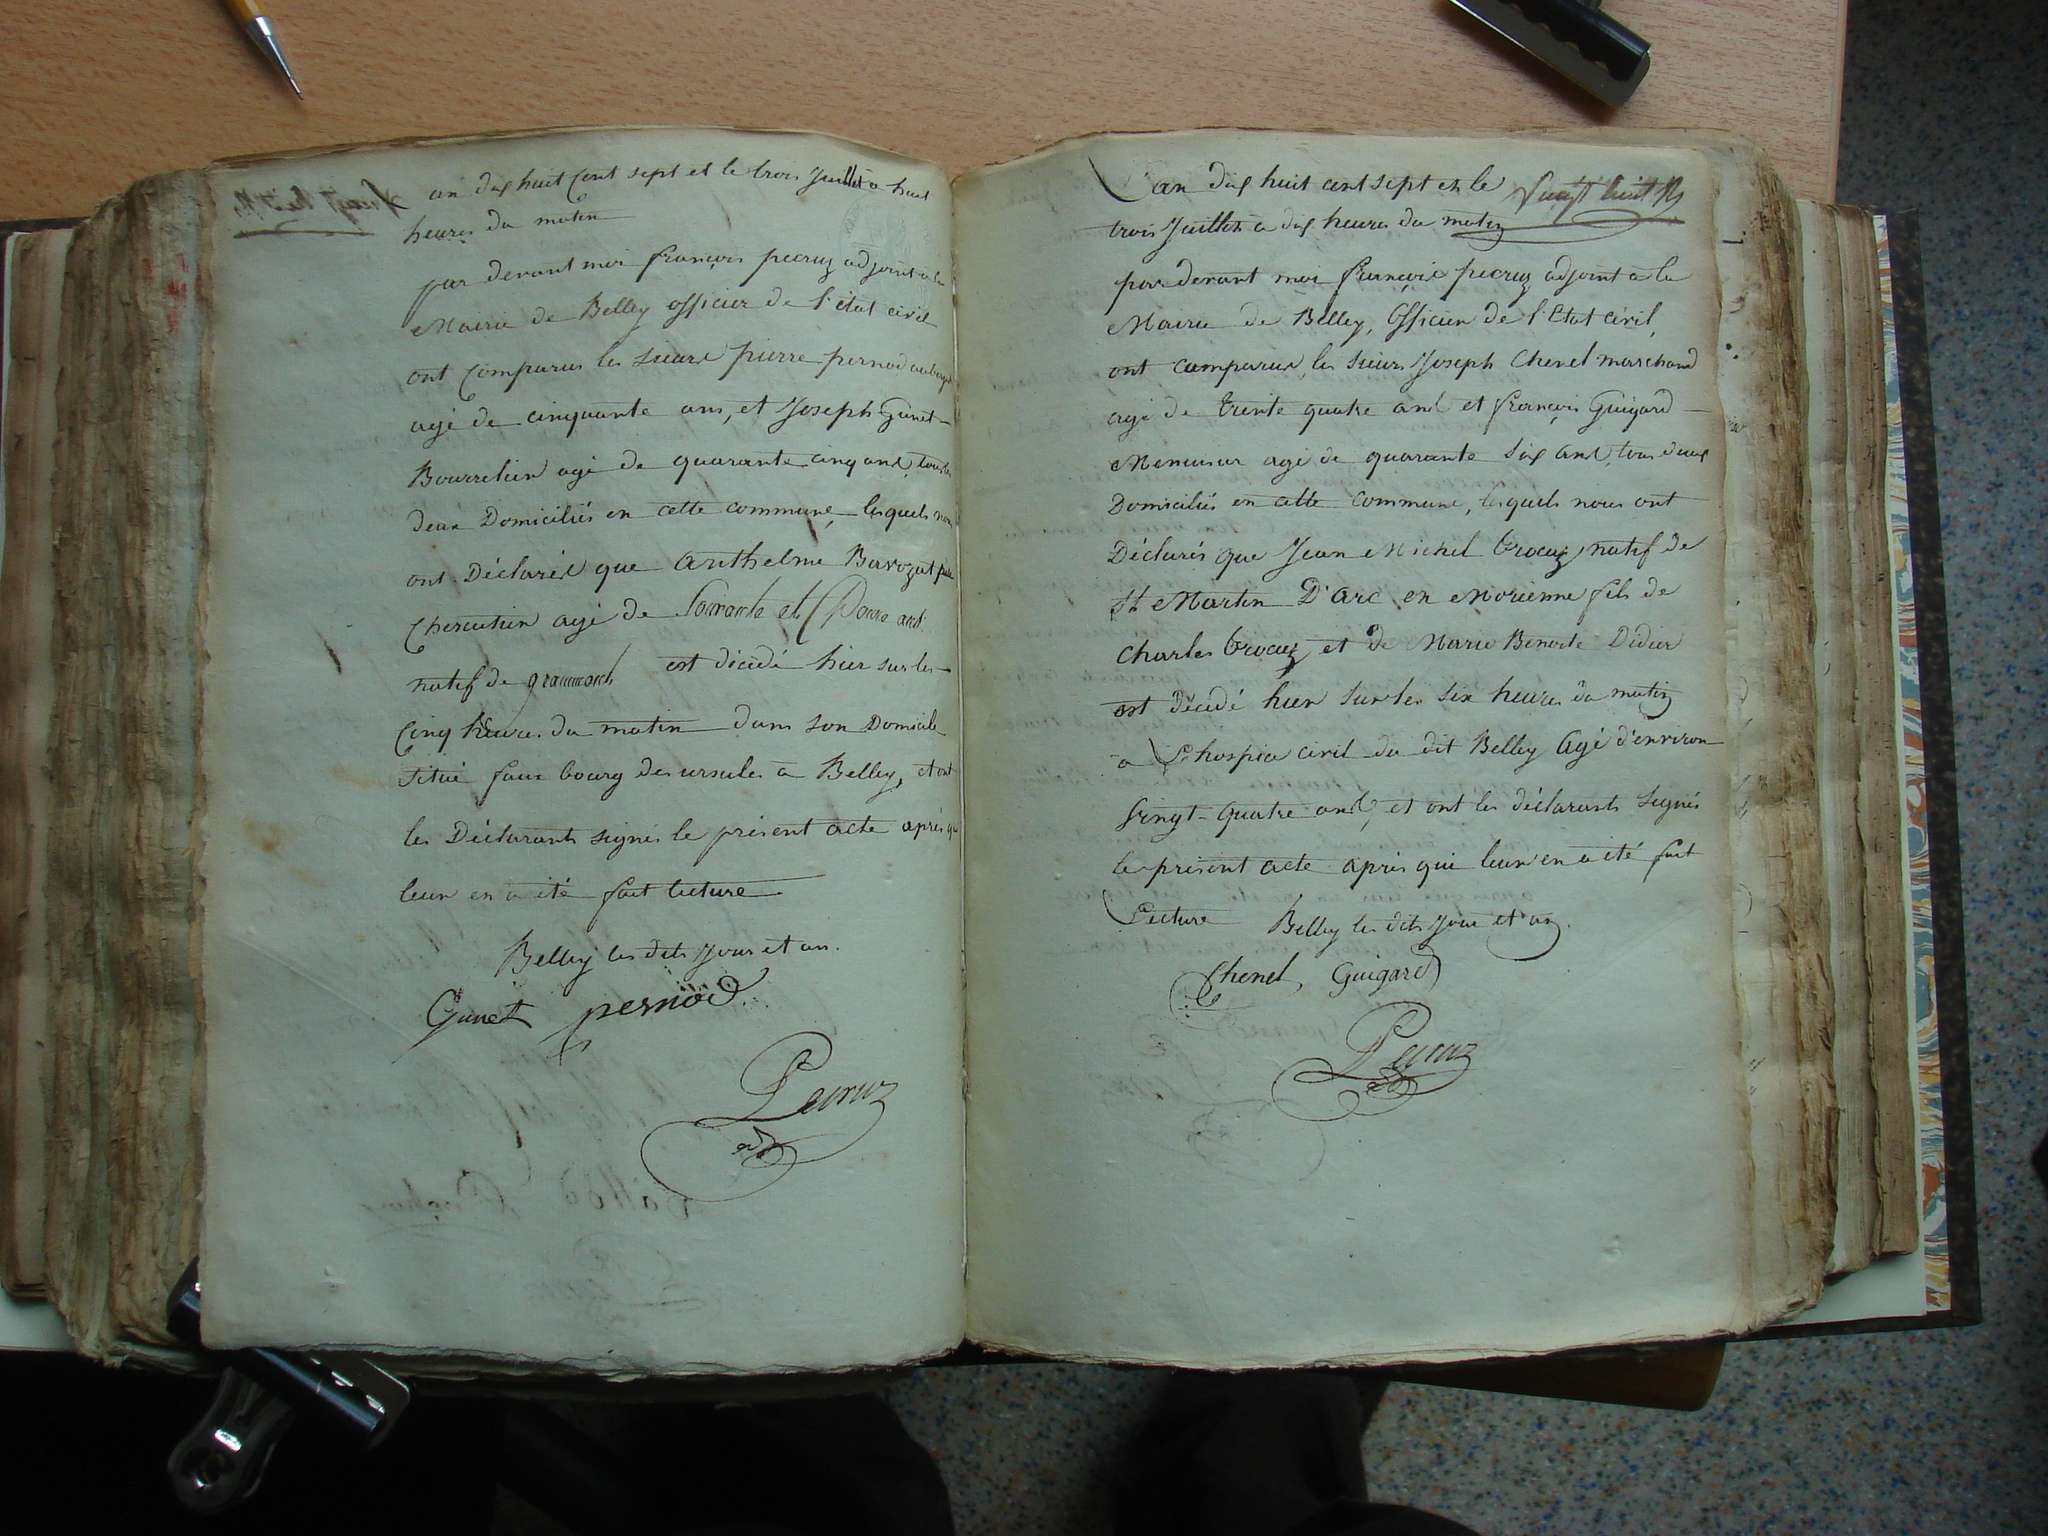 an dix huit Cent sept et le trois Juillet a huit
heures du matin
par devant moi françois pecruz adjoint a la
Mairie de Belley officier de l'état civil
ont Comparus les Sieurs pierre pernod
agé de cinquante ans, et Joseph Gunet
Bourrelier agé de quarante cinq ans, tous les
deux Domiciliés en cette commune, lesquels nous
ont Déclarés que Anthelme Bavozat
agé de Soixante et Douze ans
natif de grammont est décédé hier sur les
Cinq heures du matin dans son Domicile
Situé faux bourg des ursules à Belley, et ont
les Déclarants signés le présent acte après que
leur en a été fait lecture
Belley les dits Jour et an.
Gunet pernod
Pecruz
adj
Lan dix huit cent sept et le
vingt huit
trois Juillet à dix heures du matin
par devant moi françois pecruz adjoint à la
Mairie de Belley, Officier de l'Etat civil,
ont comparus les Sieurs Joseph Chenel marchand
agé de trente quatre ans et françois Guigard
Menuisier agé de quarante Six ans, tous deux
Domiciliés en cette commune, lesquels nous ont
Déclarés que Jean Michel natif de
St Martin D'arc en Morienne fils de
Charles et de Marie Benoite Didier
est décédé hier sur les six heures du matin
a L'hospice civil du dit Belley Agé d'environ
Vingt-quatre ans, et ont les déclarants Signés
le présent acte après qui leur en a été fait
Lecture Belley les dits Jour et an.
Chenel, Guigard
Pecruz
adj